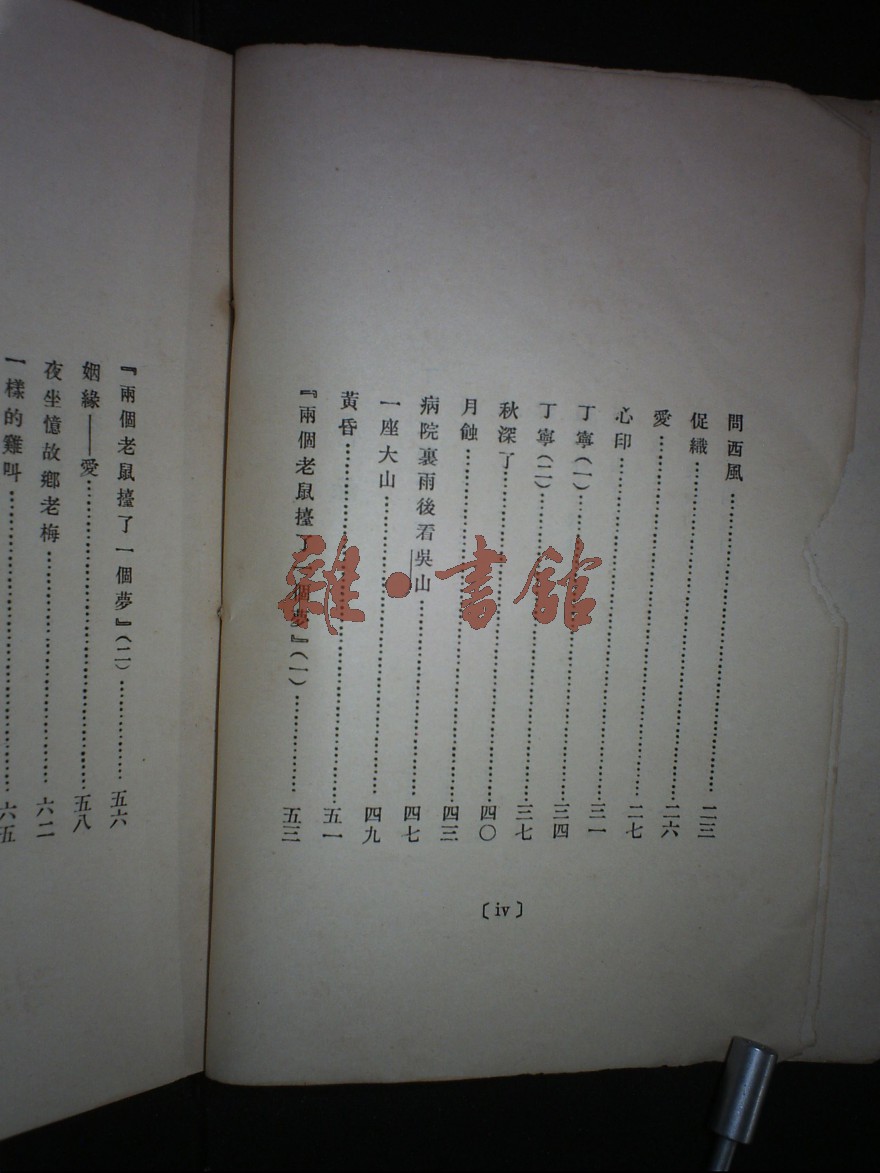 問西風……二三
促織……二六
愛……二七
心印……三一
丁寧(一)……三四
丁寧(二)……三七
秋深了……四〇
月蝕……四三
病院裏雨後看吳山……四七
一座大山……四九
黃昏……五一
『兩個老鼠擡了一個夢』(一)……五三
〔iv〕
『兩個老鼠擡了一個夢』(二)……五六
姻緣——愛……五八
夜坐憶故鄉老梅……六二
一樣的雞叫……六五
雜·書館